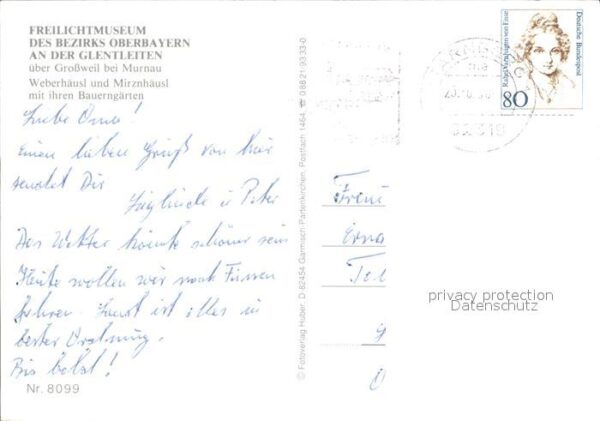 FREILICHTMUSEUM
DES BEZIRKS OBERBAYERN
AN DER GLENTLEITEN
über Großweil bei Murnau
Weberhäusl und Mirznhäusl
mit ihren Bauerngärten
Liebe Oma!
Einen lieben Gruß von hier
sendet Dir
Sieglinde u Peter
Das Wetter könnte schöner sein
Heute wollen wir nach Füssen
fahren. Sonst ist alles in
bester Ordnung.
Bis bald!
Nr. 8099
© Fotoverlag Huber, D-82454 Garmisch-Partenkirchen, Postfach 1464, ☎ 08821-9333-0
Deutsche Bundespost
Rahel Varnhagen von Ense
80
Frau
Erna
privacy protection
Datenschutz